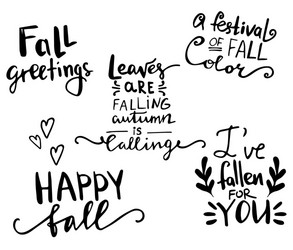 Fall
greetings
Leaves
ARE
FALLING
autumn
IS
Callinge
A festival
OF FALL
Color
HAPPY
fall
I've
fallen
FOR
YOU